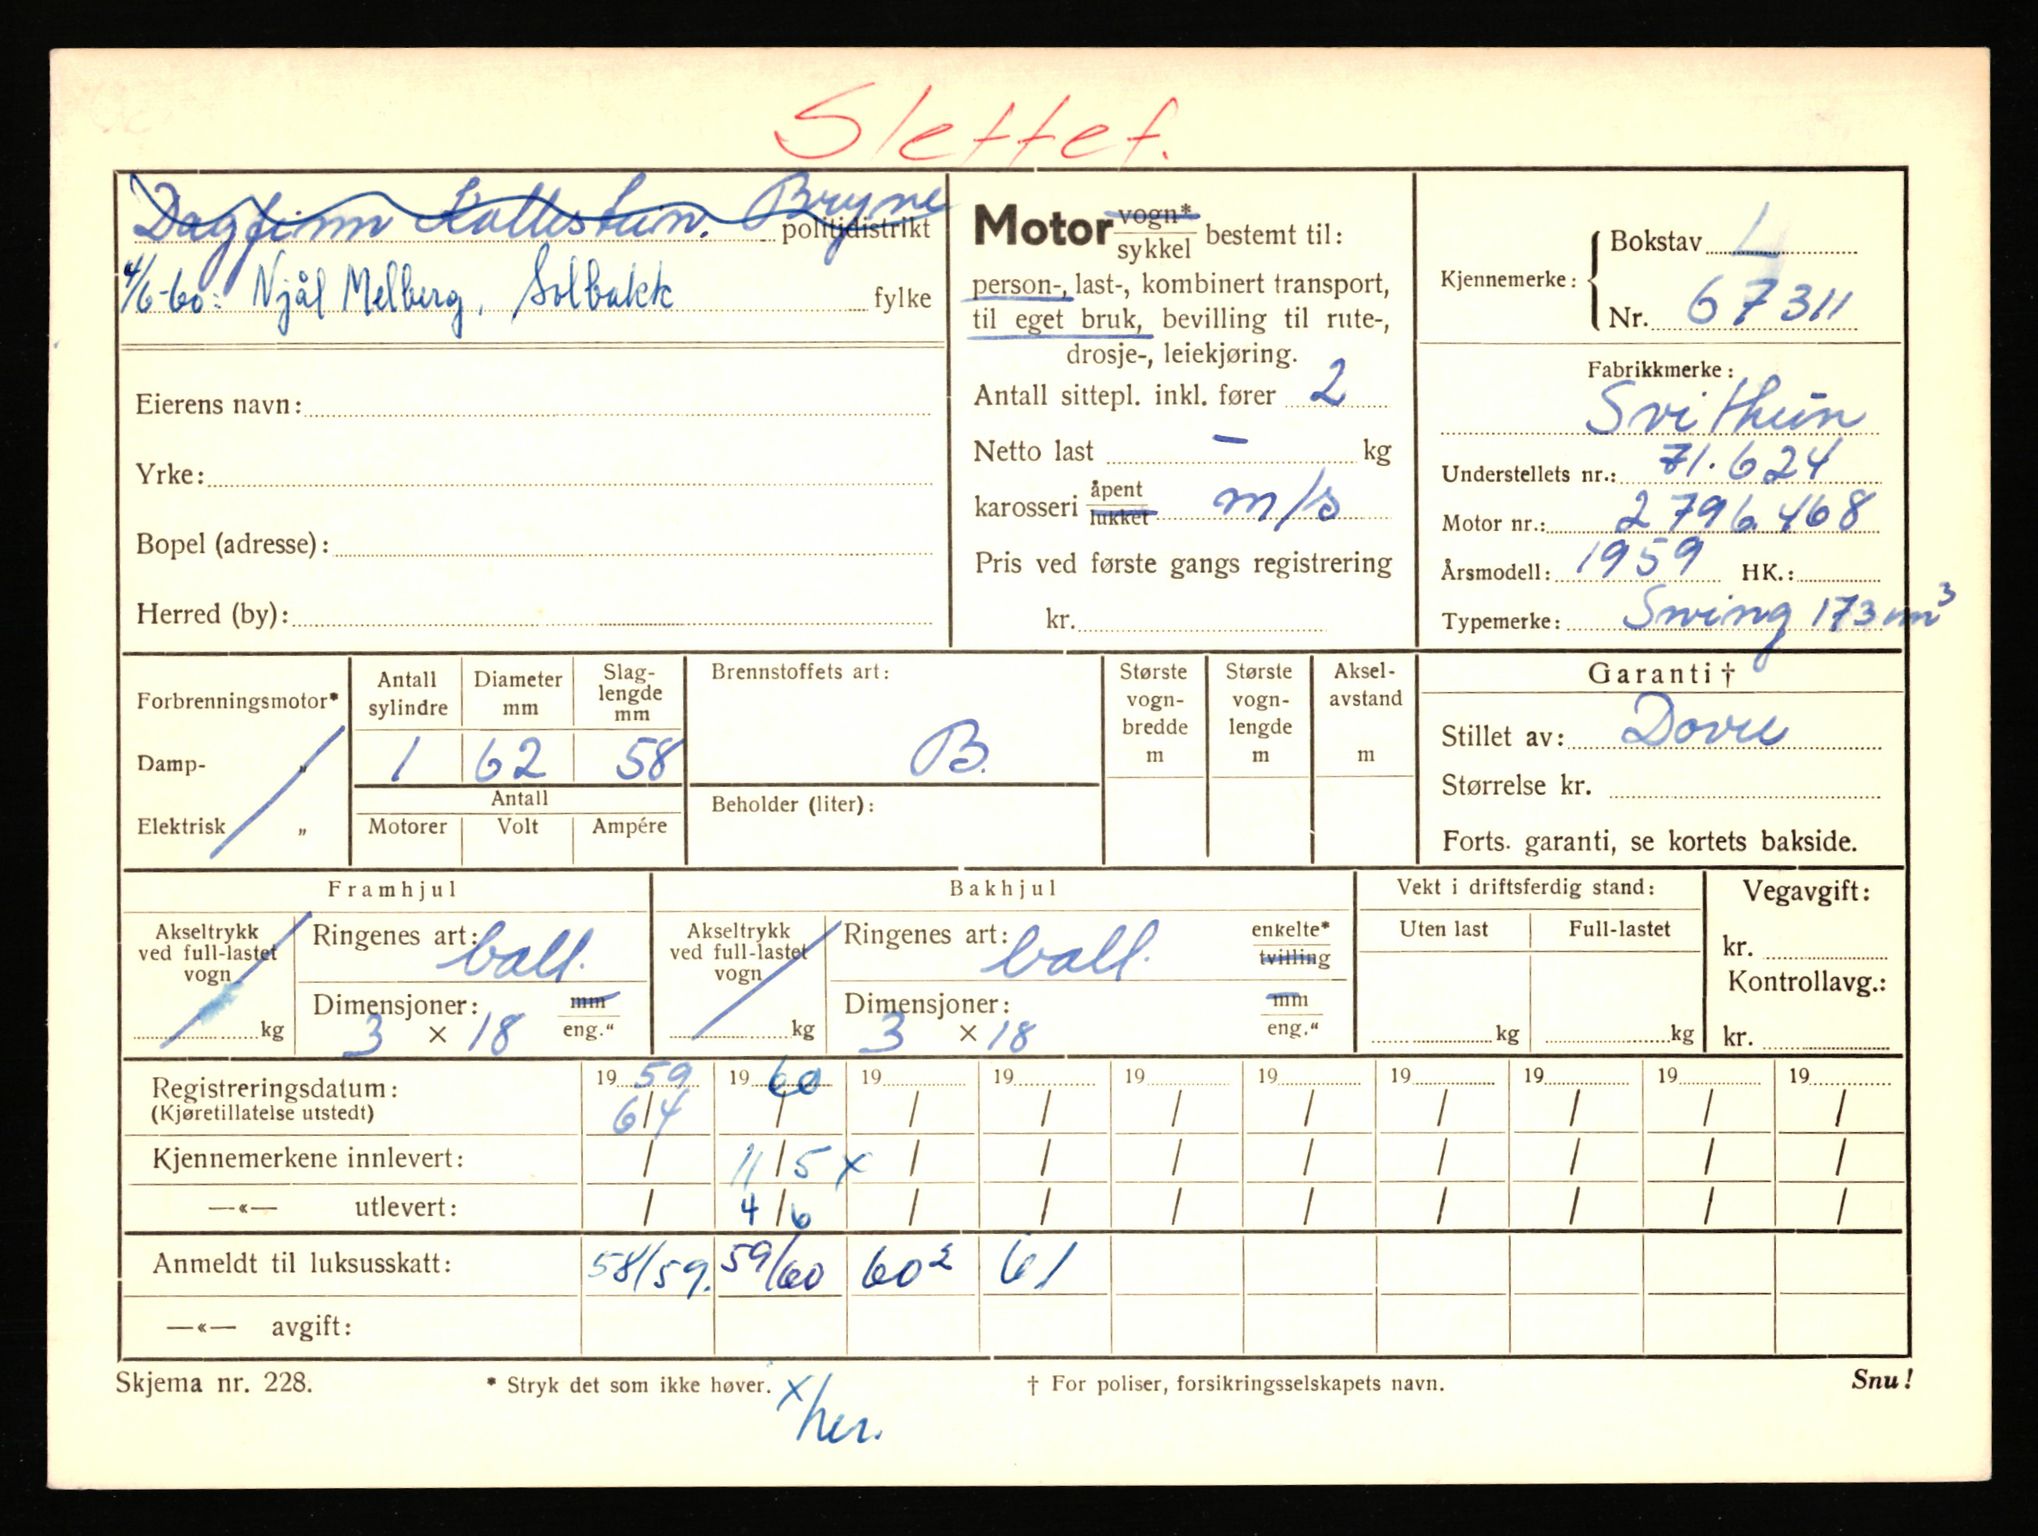 Slettet.
Dagfinn Kallestein. Bryne
politidistrikt
4/6-60: Njål Melberg, Solbakk
fylke
Eierens navn:
Yrke:
Bopel (adresse):
Herred (by):
Motor vogn* / sykkel bestemt til:
person-, last-, kombinert transport,
til eget bruk, bevilling til rute-,
drosje-, leiekjøring.
Antall sittepl. inkl. fører 2
Netto last – kg
karosseri åpent / lukket m/s
Pris ved første gangs registrering
kr.
Kjennemerke: Bokstav L
Nr. 67311
Fabrikkmerke:
Svithun
Understellets nr.: 71.624
Motor nr.: 2796468
Årsmodell: 1959 HK.:
Typemerke: Swing 173 cm³
Forbrenningsmotor*
Damp- „
Elektrisk „
Antall sylindre
Diameter mm
Slag-lengde mm
1 62 58
Antall
Motorer Volt Ampére
Brennstoffets art:
B.
Beholder (liter):
Største vogn-bredde m
Største vogn-lengde m
Aksel-avstand m
Garanti †
Stillet av: Dovre
Størrelse kr.
Forts. garanti, se kortets bakside.
Framhjul
Akseltrykk ved full-lastet vogn
kg
Ringenes art: ball.
Dimensjoner: mm / eng."
3 × 18
Bakhjul
Akseltrykk ved full-lastet vogn
kg
Ringenes art: ball. enkelte* / tvilling
Dimensjoner: mm / eng."
3 × 18
Vekt i driftsferdig stand:
Uten last Full-lastet
kg kg
Vegavgift:
kr.
Kontrollavg.:
kr.
Registreringsdatum: 19 59 19 60 19 19 19 19 19 19 19 19
(Kjøretillatelse utstedt) 6/4 / / / / / / / / /
Kjennemerkene innlevert: / 11/5 x / / / / / / / /
—«— utlevert: / 4/6 / / / / / / / /
Anmeldt til luksusskatt: 58/59. 59/60 60² 61
—«— avgift:
Skjema nr. 228. * Stryk det som ikke høver. † For poliser, forsikringsselskapets navn. Snu!
x/her.